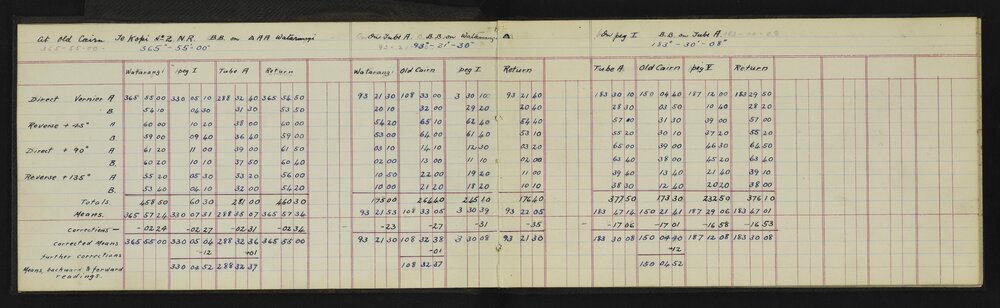 At Old Cairn Te Kopi No 2. N.R. B.B. on △ AA Watarangi On Tube A. B.B. on Watarangi △ On peg I B.B. on Tube A
365°-55'-00" 93°-21'-30" 183°-30'-08"
Watarangi peg I Tube A Return Watarangi Old Cairn peg I Return Tube A Old Cairn peg V Return
Direct Vernier A 365 55 00 330 05 10 288 32 40 365 54 50 93 21 30 108 33 00 3 30 10 93 21 40 183 30 10 150 04 40 187 12 00 183 29 50
B. 54 10 04 30 31 30 53 50 20 10 32 00 29 20 20 40 28 30 03 50 10 40 28 20
Reverse + 45° A 60 00 10 20 38 00 60 00 54 20 65 10 62 40 54 40 57 00 31 30 39 00 57 00
B 59 00 09 40 36 40 59 00 53 00 64 00 61 40 53 10 55 20 30 10 37 20 55 20
Direct + 90° A 61 20 11 00 39 00 61 50 03 10 14 10 12 30 03 20 65 00 39 00 46 30 64 50
B. 60 20 10 10 37 50 60 40 02 00 13 00 11 10 02 00 63 40 38 00 45 20 63 40
Reverse + 135° A 55 20 05 30 33 20 56 00 10 50 22 00 19 20 11 00 39 40 13 40 21 40 39 10
B. 53 40 04 10 32 00 54 20 10 00 21 20 18 20 10 10 38 30 12 40 20 20 38 00
Totals. 458 50 60 30 281 00 460 30 175 00 264 40 245 10 176 40 377 50 173 30 232 50 376 10
Means. 365 57 24 330 07 31 288 35 07 365 57 34 93 21 53 108 33 05 3 30 39 93 22 05 183 47 14 150 21 41 187 29 06 183 47 01
corrections — -02 24 -02 27 -02 31 -02 34 -23 -27 -31 -35 -17 06 -17 01 -16 58 -16 53
corrected Means 365 55 00 330 05 04 288 32 36 365 55 00 93 21 30 108 32 38 3 30 08 93 21 30 183 30 08 150 04 40 187 12 08 183 30 08
further corrections -12 +01 -01 +12
Means, backward & forward 330 04 52 288 32 37 108 32 37 150 04 52
readings.